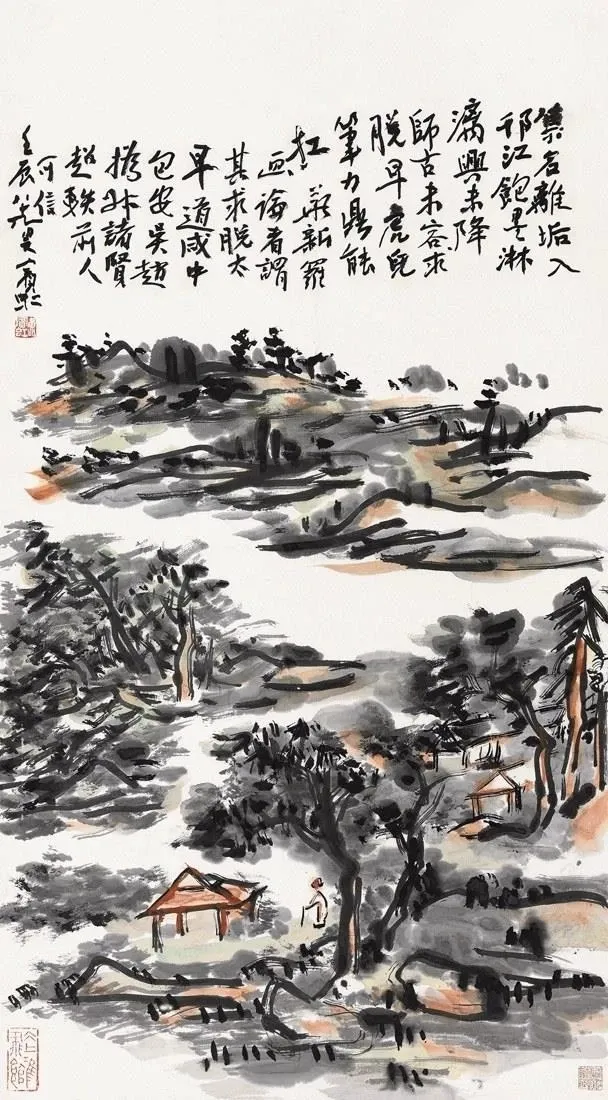 集名離垢入
邗江飽墨淋
漓興未降
師古未容求
脱早虎兒
筆力鼎能
扛 華新羅
畫論者謂
其求脱太
早道咸中
包安吳趙
撝叔諸賢
超軼前人
可信
壬辰 叟賓虹